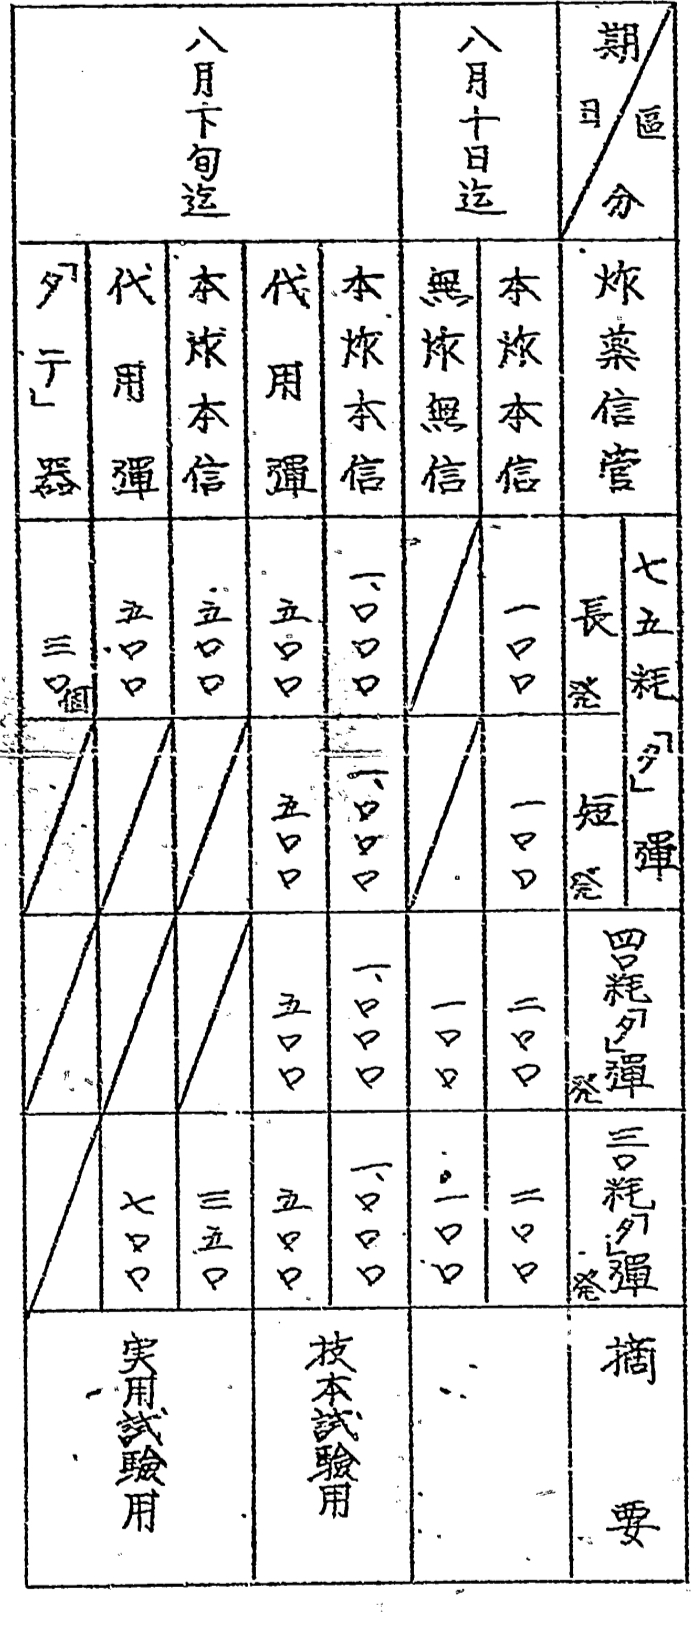 期日
區分
炸薬信管
七五粍「タ」彈
長 発
短 発
四〇粍「タ」彈 発
三〇粍「タ」彈 発
摘要
八月十日迄
本炸本信
一〇〇
一〇〇
二〇〇
二〇〇
無炸無信
一〇〇
一〇〇
八月下旬迄
本炸本信
一、〇〇〇
一、〇〇〇
一、〇〇〇
一、〇〇〇
技本試験用
代用彈
五〇〇
五〇〇
五〇〇
五〇〇
本炸本信
五〇〇
三五〇
実用試験用
代用彈
五〇〇
七〇〇
「タテ」器
三〇個